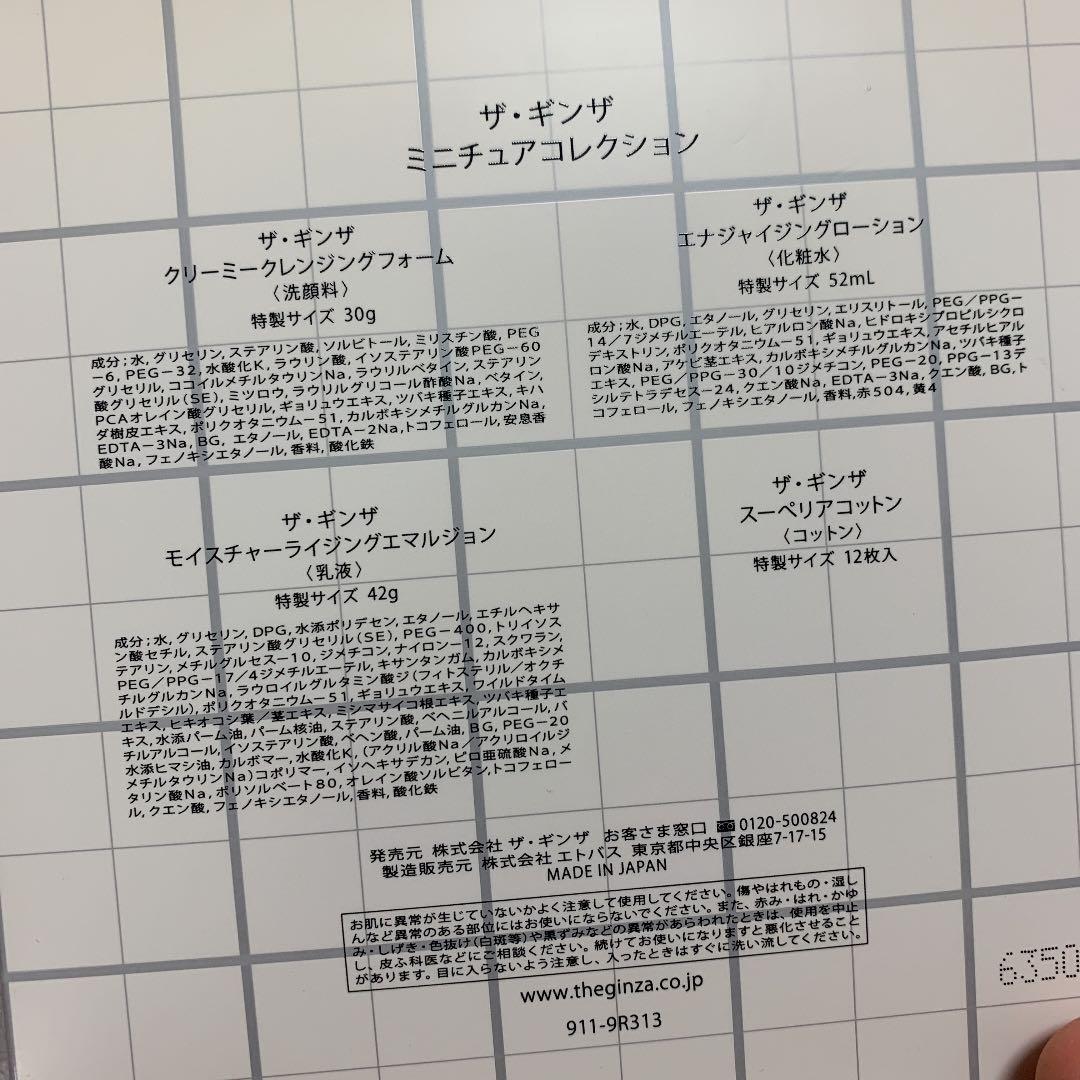 ザ・ギンザ
ミニチュアコレクション
ザ・ギンザ
クリーミークレンジングフォーム
〈洗顔料〉
特製サイズ 30g
成分；水, グリセリン, ステアリン酸, ソルビトール, ミリスチン酸, PEG
−6, PEG−32, 水酸化K, ラウリン酸, イソステアリン酸PEG−60
グリセリル, ココイルメチルタウリンNa, ラウリルベタイン, ステアリン
酸グリセリル（SE）, ミツロウ, ラウリルグリコール酢酸Na, ベタイン,
PCAオレイン酸グリセリル, ギョリュウエキス, ツバキ種子エキス, キハ
ダ樹皮エキス, ポリクオタニウム−51, カルボキシメチルグルカンNa,
EDTA−3Na, BG, エタノール, EDTA−2Na,トコフェロール, 安息香
酸Na, フェノキシエタノール, 香料, 酸化鉄
ザ・ギンザ
エナジャイジングローション
〈化粧水〉
特製サイズ 52mL
成分；水, DPG, エタノール, グリセリン, エリスリトール, PEG／PPG−
14／7ジメチルエーテル, ヒアルロン酸Na, ヒドロキシプロピルシクロ
デキストリン, ポリクオタニウム−51, ギョリュウエキス, アセチルヒアル
ロン酸Na, アケビ茎エキス, カルボキシメチルグルカンNa, ツバキ種子
エキス, PEG／PPG−30／10ジメチコン, PEG−20, PPG−13デ
シルテトラデセス−24, クエン酸Na, EDTA−3Na, クエン酸, BG,ト
コフェロール, フェノキシエタノール, 香料,赤504, 黄4
ザ・ギンザ
モイスチャーライジングエマルジョン
〈乳液〉
特製サイズ 42g
成分；水, グリセリン, DPG, 水添ポリデセン, エタノール, エチルヘキサ
ン酸セチル, ステアリン酸グリセリル（SE）, PEG−400, トリイソス
テアリン, メチルグルセス−10, ジメチコン, ナイロン−12, スクワラン,
PEG／PPG−17／4ジメチルエーテル, キサンタンガム, カルボキシメ
チルグルカンNa, ラウロイルグルタミン酸ジ（フィトステリル／オクチ
ルドデシル）, ポリクオタニウム−51, ギョリュウエキス, ワイルドタイム
エキス, ヒキオコシ葉／茎エキス, ミシマサイコ根エキス, ツバキ種子エ
キス, 水添パーム油, パーム核油, ステアリン酸, ベヘニルアルコール, バ
チルアルコール, イソステアリン酸, ベヘン酸, パーム油, BG, PEG−20
水添ヒマシ油, カルボマー, 水酸化K, （アクリル酸Na／アクリロイルジ
メチルタウリンNa）コポリマー, イソヘキサデカン, ピロ亜硫酸Na, メ
タリン酸Na, ポリソルベート80, オレイン酸ソルビタン,トコフェロー
ル, クエン酸, フェノキシエタノール, 香料, 酸化鉄
ザ・ギンザ
スーペリアコットン
〈コットン〉
特製サイズ 12枚入
発売元 株式会社 ザ・ギンザ お客さま窓口 0120-500824
製造販売元 株式会社 エトバス 東京都中央区銀座7-17-15
MADE IN JAPAN
お肌に異常が生じていないかよく注意して使用してください。傷やはれもの・湿し
んなど異常のある部位にはお使いにならないでください。また、赤み・はれ・かゆ
み・しげき・色抜け(白斑等)や黒ずみなどの異常があらわれたときは、使用を中止
し、皮ふ科医などにご相談ください。続けてお使いになりますと悪化させること
があります。目に入らないよう注意し、入ったときはすぐに洗い流してください。
www.theginza.co.jp
911-9R313
6350